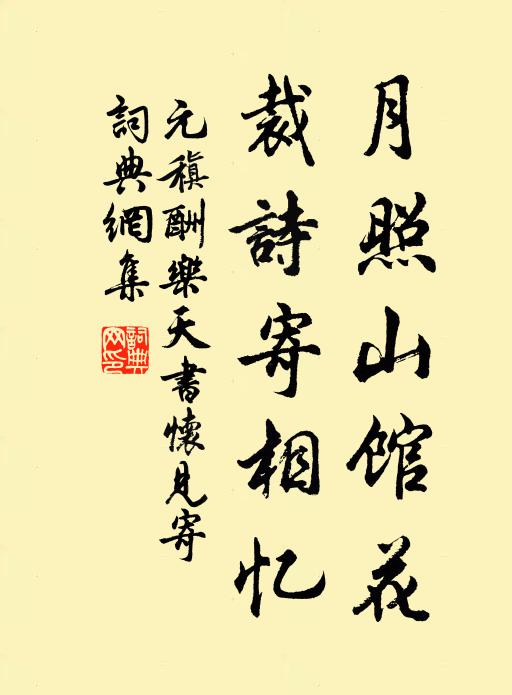 月照山馆花
裁詩寄相忆
元稹酬樂天書懷見寄
詞典網集
詞典
网印